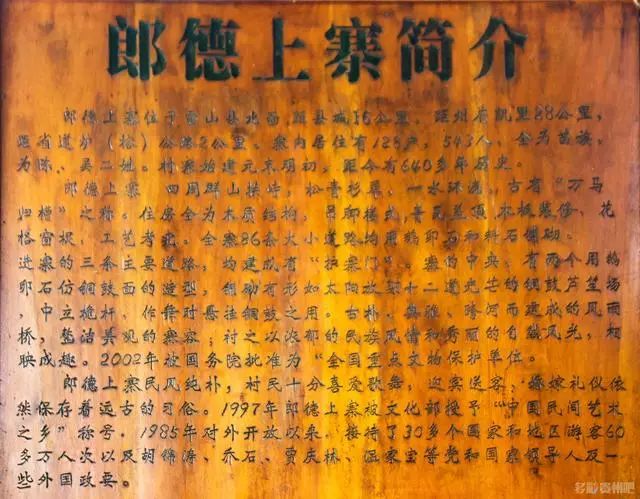 郎德上寨简介
郎德上寨位于雷山县北面，距县城16公里，距州府凯里28公里，
距省道炉（榕）公路2公里。寨内居住有128户，543人，全为苗族，
为陈、吴二姓。村寨始建元末明初，距今有640多年历史。
郎德上寨 四周群山拱峙，松青杉翠，一水环流，古有“万马
归槽”之称。住房全为木质结构，吊脚楼式，青瓦盖顶，木板装修，花
格窗棂，工艺考究。全寨86条大小道路均用鹅卵石和料石镶砌。
进寨的三条主要道路，均建成有“护寨门”。寨的中央，有两个用鹅
卵石仿铜鼓面的造型，铺砌有形如太阳放草十二道光芒的铜鼓芦笙场
，中立桅杆，作脊对悬挂铜鼓之用。古朴、典雅、跨河而建成的风雨
桥，整洁美观的寨容，衬之以浓郁的民族风情和秀丽的自然风光，相
映成趣。2002年被国务院批准为“全国重点文物保护单位。
郎德上寨民风纯朴，村民十分喜爱歌舞，迎宾送客、婚嫁礼仪依
然保存着远古的习俗。1997年郎德上寨被文化部授予“中国民间艺术
之乡”称号。1985年对外开放以来，接待了30多个国家和地区游客60
多万人次以及胡锦涛、乔石、贾庆林、温家宝等党和国家领导人及一
些外国政要。
多彩贵州吧